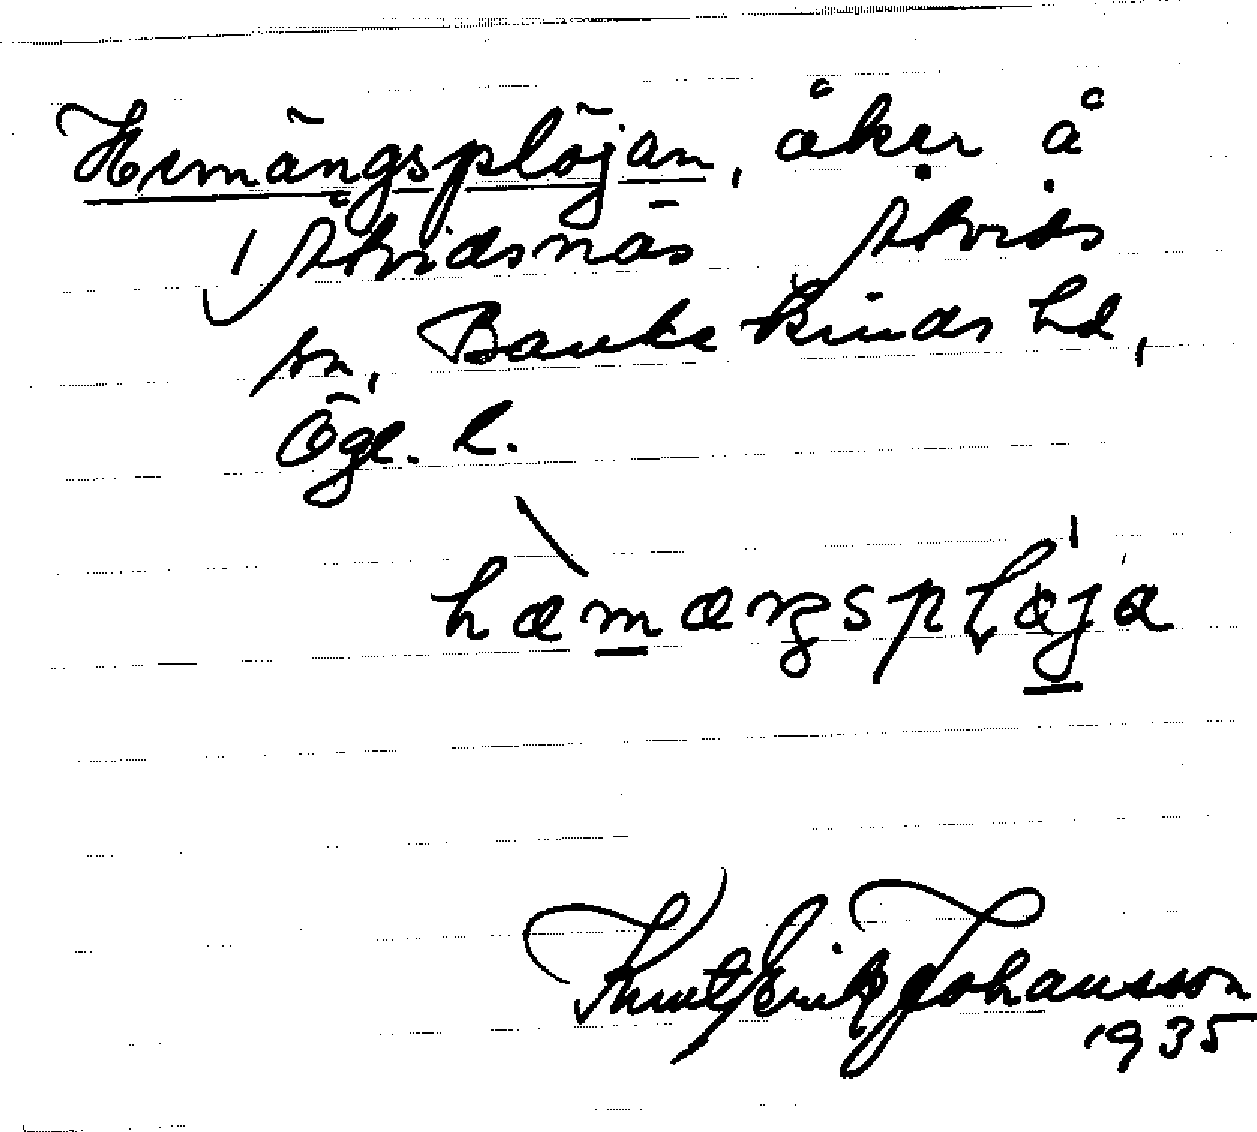 Hemängsplöjan, åker å
Åtvidsnäs Åtvids
sn, Bankekinds hd,
Ögl. l.
hæmæŋsplöja
Knut Erik Johansson
1935